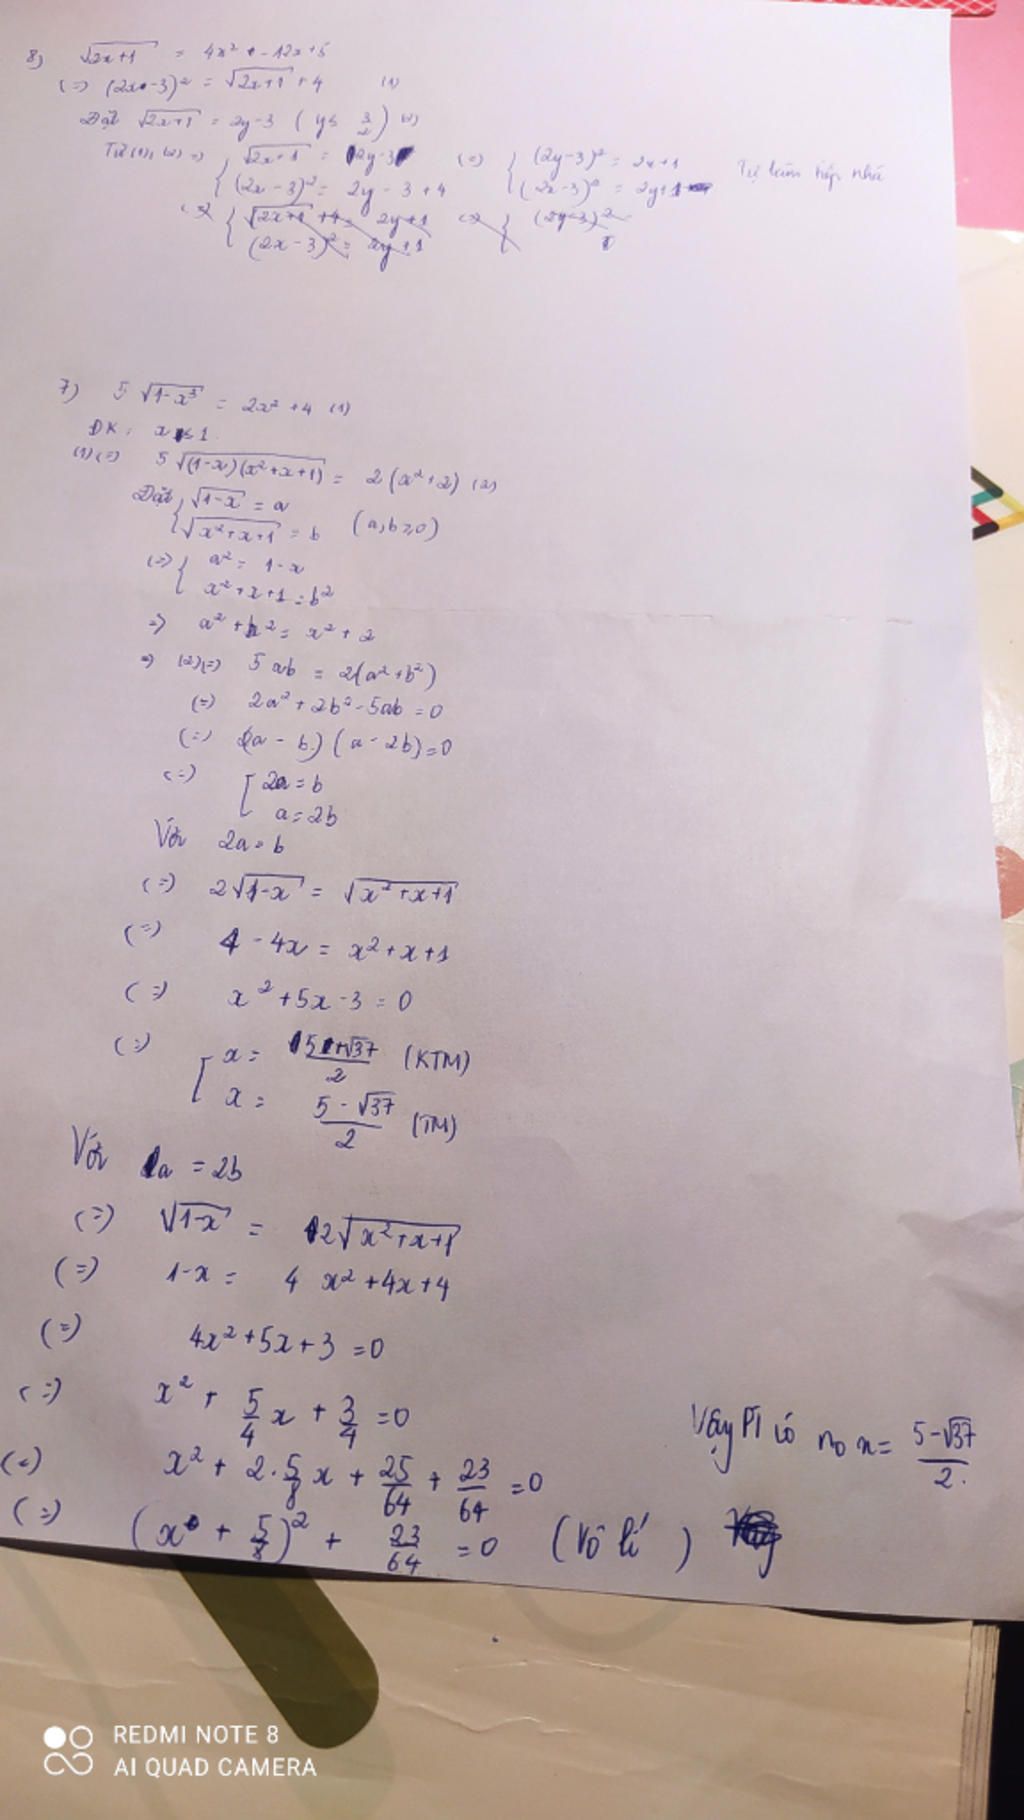 8) √2x+1 = 4x² - 12x+5
(=) (2x-3)² = √2x+1 + 4 (1)
Đặt √2x+1 = 2y-3 ( y≤ 3/2 ) (2)
Từ (1), (2) => { √2x+1 = 2y-3 (=) { (2y-3)² = 2x+1 Tự làm tiếp nhé
(2x-3)² = 2y-3+4 (2x-3)² = 2y+1
7) 5 √1-x³ = 2x²+4 (1)
ĐK: x ≤ 1
(1) (=) 5 √(1-x)(x²+x+1) = 2(x²+2) (2)
Đặt { √1-x = a
√x²+x+1 = b (a,b≥0)
(=) { a² = 1-x
x²+x+1 = b²
=> a²+b² = x²+2
=> (2) (=) 5ab = 2(a²+b²)
(=) 2a²+2b²-5ab=0
(=) (2a - b)(a-2b)=0
(=) [ 2a = b
a = 2b
Với 2a = b
(=) 2√1-x = √x²+x+1
(=) 4 - 4x = x²+x+1
(=) x²+5x-3 = 0
(=) [ x = 5+√37/2 (KTM)
x = 5-√37/2 (TM)
Với a = 2b
(=) √1-x = 2√x²+x+1
(=) 1-x = 4x²+4x+4
(=) 4x²+5x+3=0
(=) x² + 5/4 x + 3/4 =0
(=) x² + 2.5/8 x + 25/64 + 23/64 =0
Vậy PT có no x= 5-√37/2.
(=) (x + 5/8)² + 23/64 =0 (Vô lí)
REDMI NOTE 8
AI QUAD CAMERA